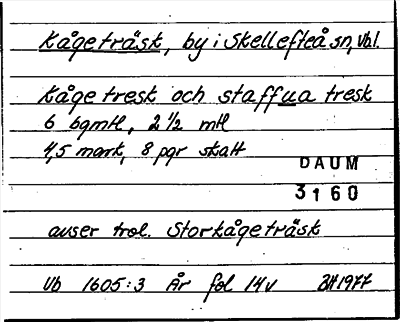 Kågeträsk, by i Skellefteå sn, Vbl.
Kåge tresk och staffua tresk
6 bgmtl, 2 1/2 mtl
4,5 mark, 8 pgr skatt
DAUM
3160
avser trol. Storkågeträsk
Vb 1605:3 År fol 14v BH 1977